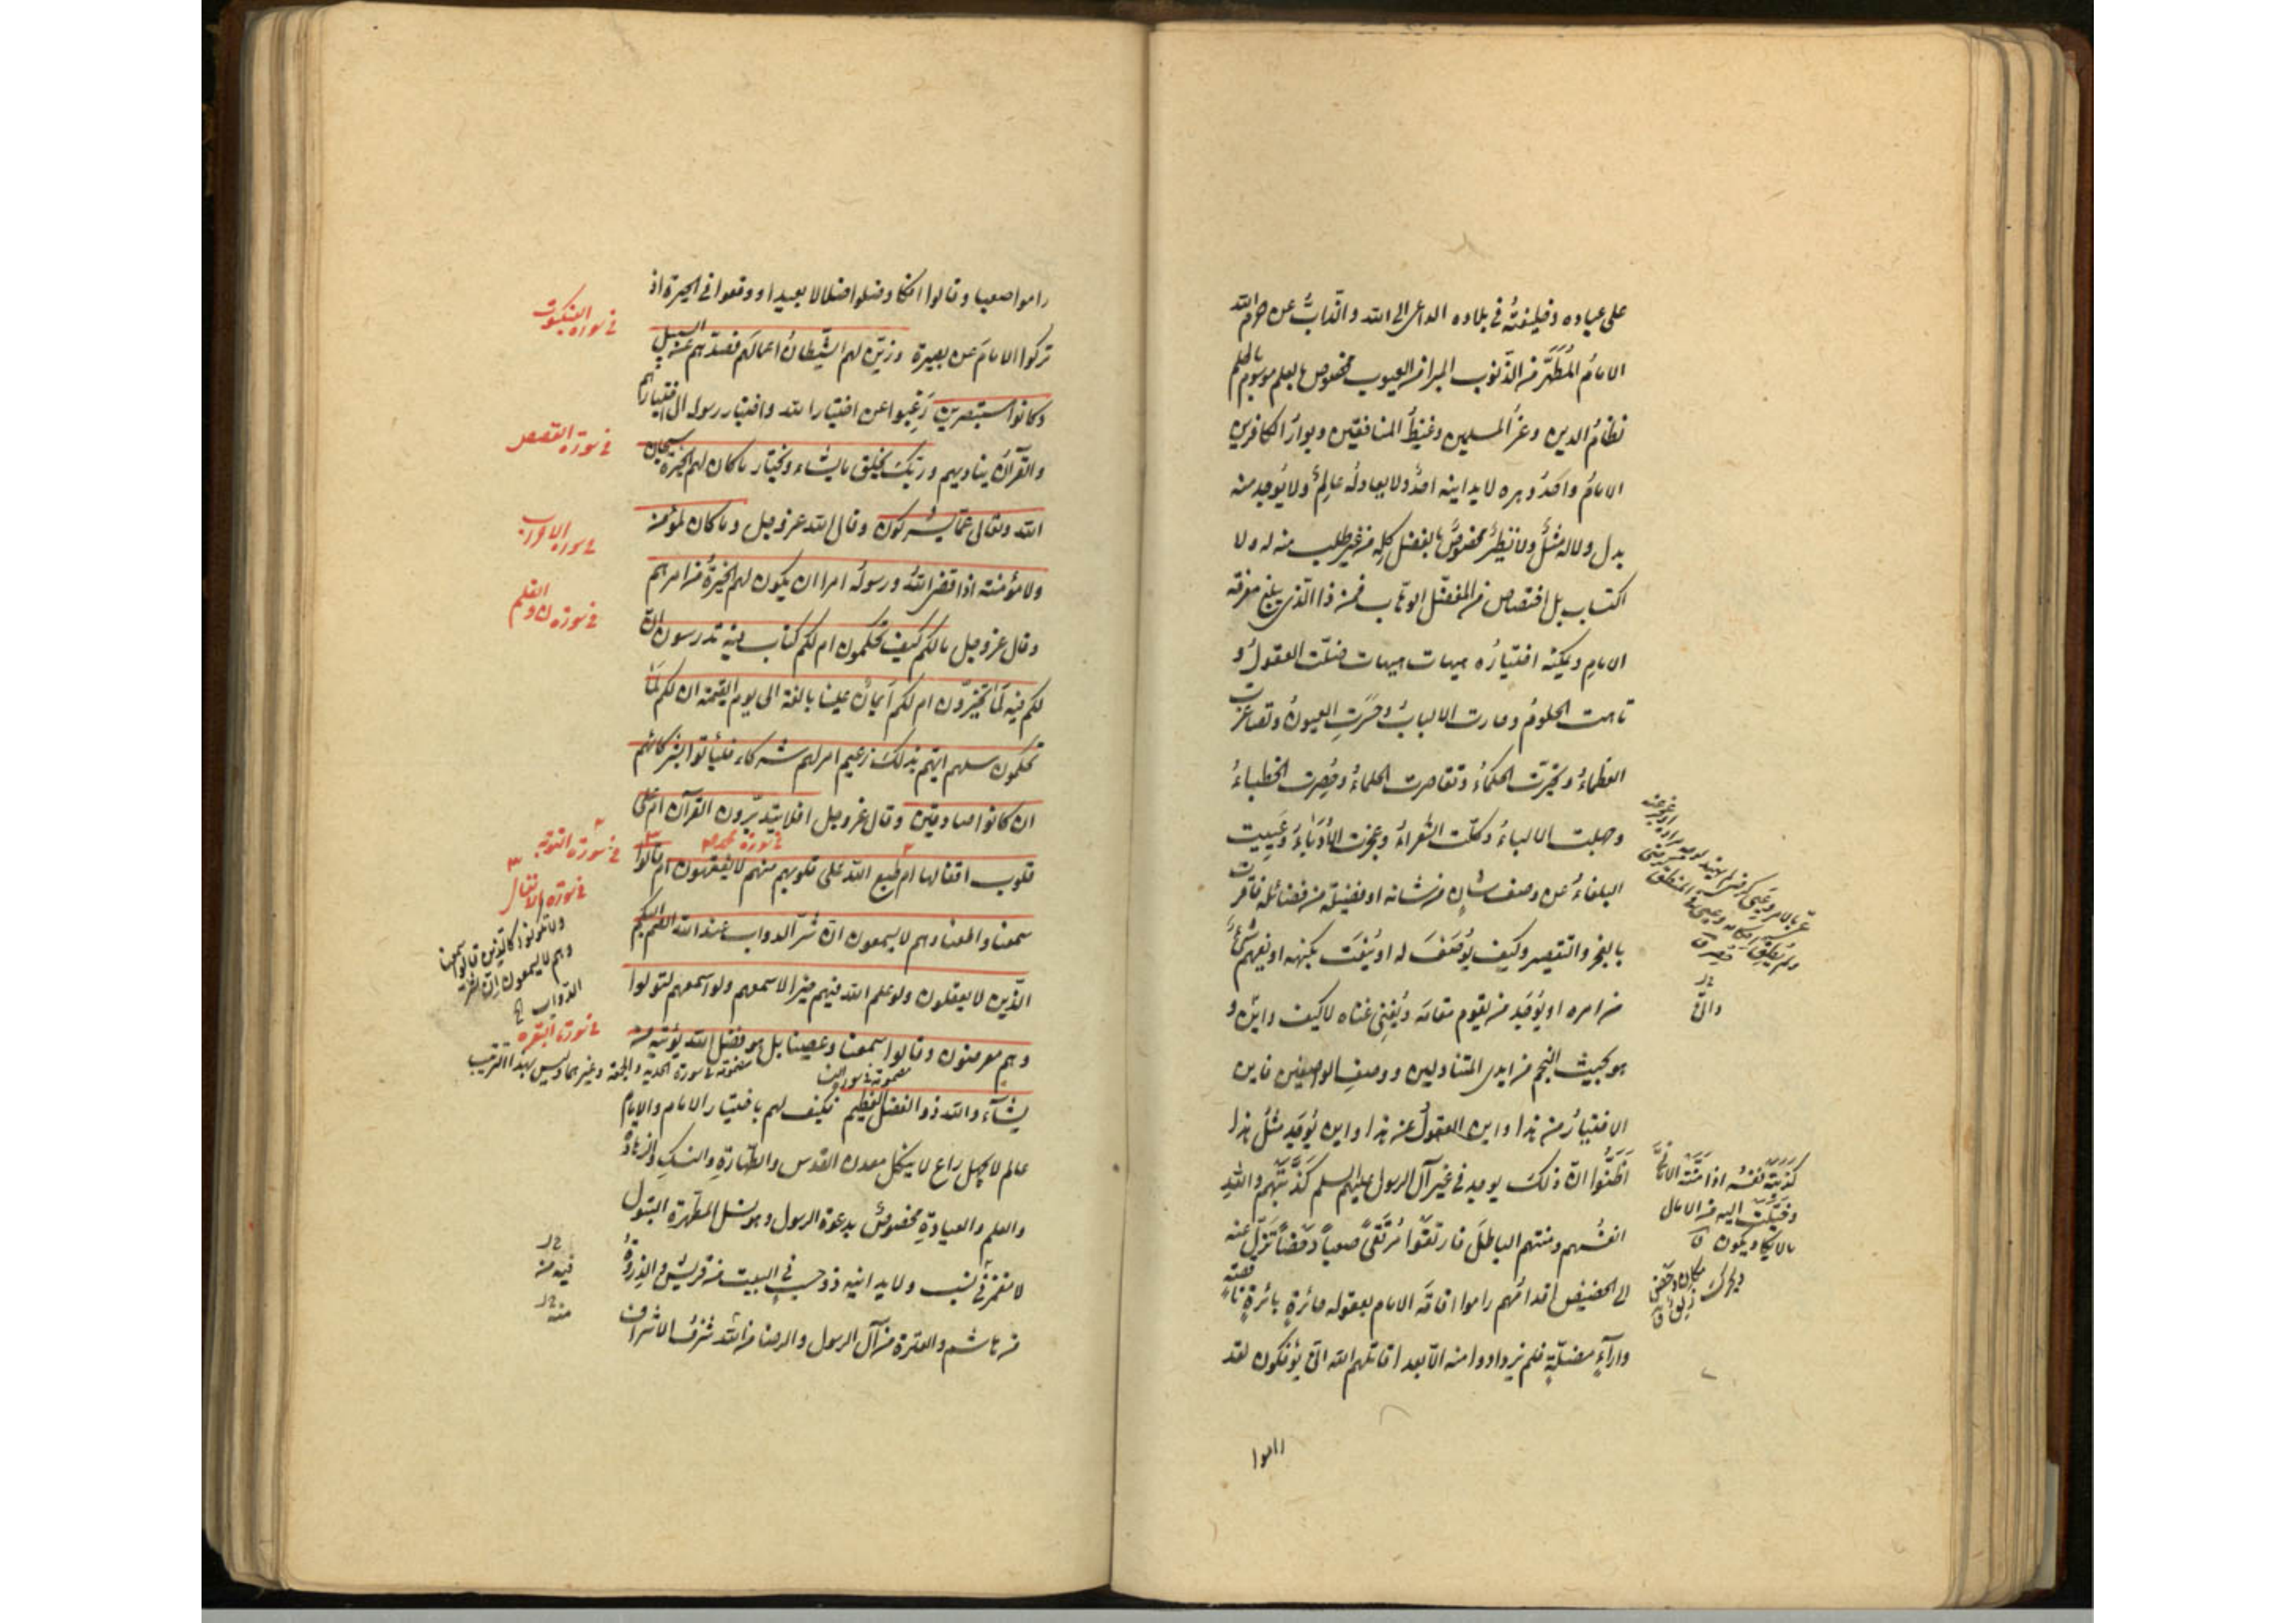 على عباده وخليفته في بلاده الداعي الى الله والذابّ عن حرم الله
الامام المُطَهَّر من الذنوب المبرا من العيوب مخصوص بالعلم موسوم بالحلم
نظام الدين وعزّ المسلمين وغيظ المنافقين وبوار الكافرين
الامام واحد دهره لا يدانيه احدٌ ولا يعادله عالمٌ ولا يوجد منه
بدل ولا له مثل ولا نظيرٌ مخصوصٌ بالفضل كله من غير طلب منه له ولا
اكتساب بل اختصاص من المفضل الوهاب فمن ذا الذي يبلغ معرفة
الامام ويمكنه اختياره هيهات هيهات ضلّت العقول و
تاهت الحلوم وحارت الالباب وخسرت العيون وتصاغرت
العظماء وتحيرت الحكماء وتقاصرت الحلماء وحصرت الخطباء
وجهلت الالباء وكلّت الشعراء وعجزت الأُدَباء وعَيِيت
البلغاء عن وصف شان من شانه او فضيلة من فضائله فاقرّت
بالعجز والتقصير وكيف يُوصَفُ له او يُنعَت بكنهه او يفهم شئٌ
من امره او يُوجَد من يقوم مقامه ويُغنى غناه لا كيف وانّى و
هو بحيث النجم من ايدى المتناولين ووصف الواصفين فاين
الاختيار من هذا واين العقول عن هذا واين يُوجَد مثل هذا
اَظَنُّوا انّ ذلك يوجد في غير آل الرسول عليهم السلم كَذَّبَتْهم والله
انفسهم ومنّتهم الباطل فارتقَوا مُرتقًى صعباً دَحضاً تزلّ عنه
الى الحضيض اقدامهم راموا اقامة الامام بعقول حائرة بائرة ناقصة
وآراءٍ مضلّةٍ فلم يزدادوا منه الّا بعدا قاتلهم الله انّى يؤفكون لقد
راموا
راموا صعبا وقالوا افكا وضلوا ضلالا بعيدا ووقعوا في الحيرة اذ
تركوا الامام عن بصيرة وزيّن لهم الشيطان اعمالهم فصدّهم عن السبيل
وكانوا مستبصرين رَغِبوا عن اختيار الله واختيار رسوله الى اختيارهم
والقرآن يناديهم وربّك يخلق ما يشاء ويختار ما كان لهم الخيرة سبحان
الله وتعالى عمّا يشركون وقال الله عز وجل وما كان لمؤمن
ولا مؤمنة اذا قضى الله ورسوله امرا ان يكون لهم الخيرة من امرهم
وقال عز وجل ما لكم كيف تحكمون ام لكم كتاب فيه تدرسون انّ
لكم فيه لَمَا تخيّرون ام لكم أيمان علينا بالغة الى يوم القيمة ان لكم لَمَا
تحكمون سلهم ايهم بذلك زعيم ام لهم شركاء فليأتوا بشركائهم
ان كانوا صادقين وقال عز وجل افلا يتدبّرون القرآن ام على
قلوب اقفالها ام طبع الله على قلوبهم فهم لا يفقهون ام قالوا
سمعنا واطعنا وهم لا يسمعون انّ شرّ الدواب عند الله الصم البكم
الّذين لا يعقلون ولو علم الله فيهم خيرا لاسمعهم ولو اسمعهم لتولوا
وهم معرضون وقالوا سمعنا وعصينا بل هو فضل الله يؤتيه من
يشآء والله ذو الفضل العظيم فكيف لهم باختيار الامام والامام
عالم لا يجهل راع لا ينكل معدن القدس والطّهارة والنسك والزهادة
والعلم والعبادة مخصوصٌ بدعوة الرسول وهو نسل المطهرة البتول
لا مغمز في نسب ولا يدانيه ذو حسب في البيت من قريش والذروة
من هاشم والعترة من آل الرسول والرضا من الله شرف الاشراف
في سورة العنكبوت
في سورة القصص
في سورة الاحزاب
في سورة ن والقلم
في سورة محمد ص
في سورة التوبة
في سورة الانفال
ولا تكونوا كالذين قالوا سمعنا
وهم لا يسمعون انّ شرّ
الدواب
في سورة البقرة
فيه من
منه